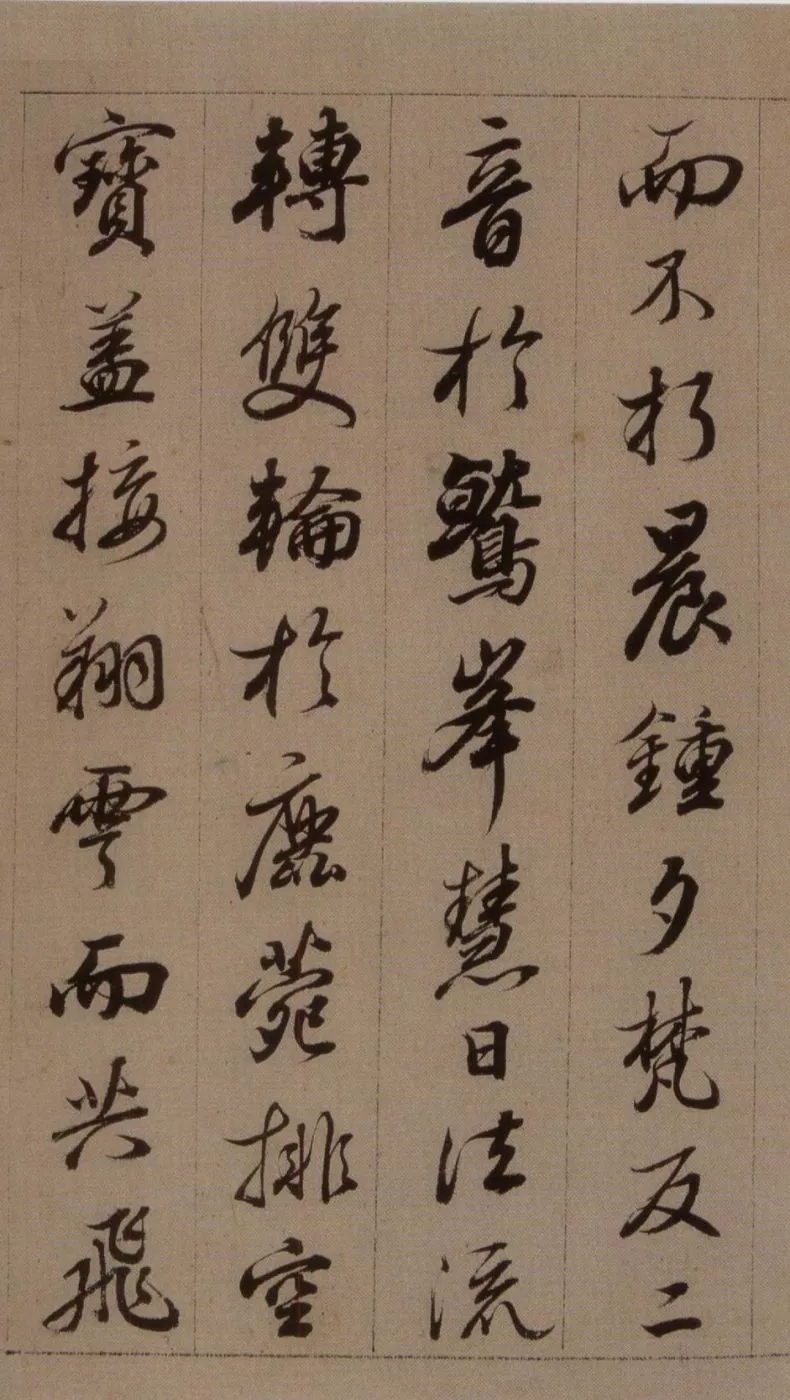 而不朽晨鍾夕梵反二
音於鷲峯慧日法流
轉雙輪於鹿菀排空
寶盖接翔雲而共飛